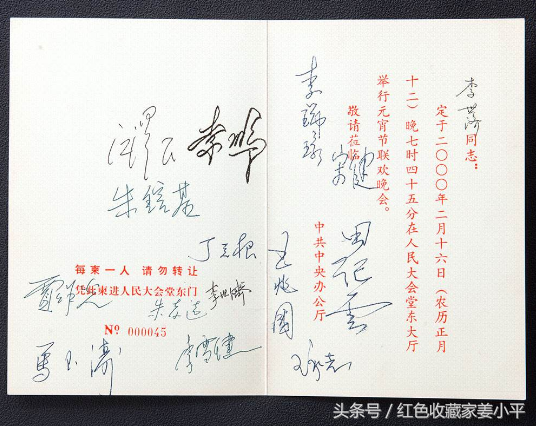 李世济同志：
定于二〇〇〇年二月十六日（农历正月
十二）晚七时四十五分在人民大会堂东大厅
举行元宵节联欢晚会。
敬请莅临
中共中央办公厅
李瑞环
宋健
田纪云
王兆国
江泽民
李鹏
朱镕基
丁关根
每柬一人 请勿转让
凭此柬进人民大会堂东门
№ 000045
李世济
马玉涛
李雪健
头条号 / 红色收藏家姜小平